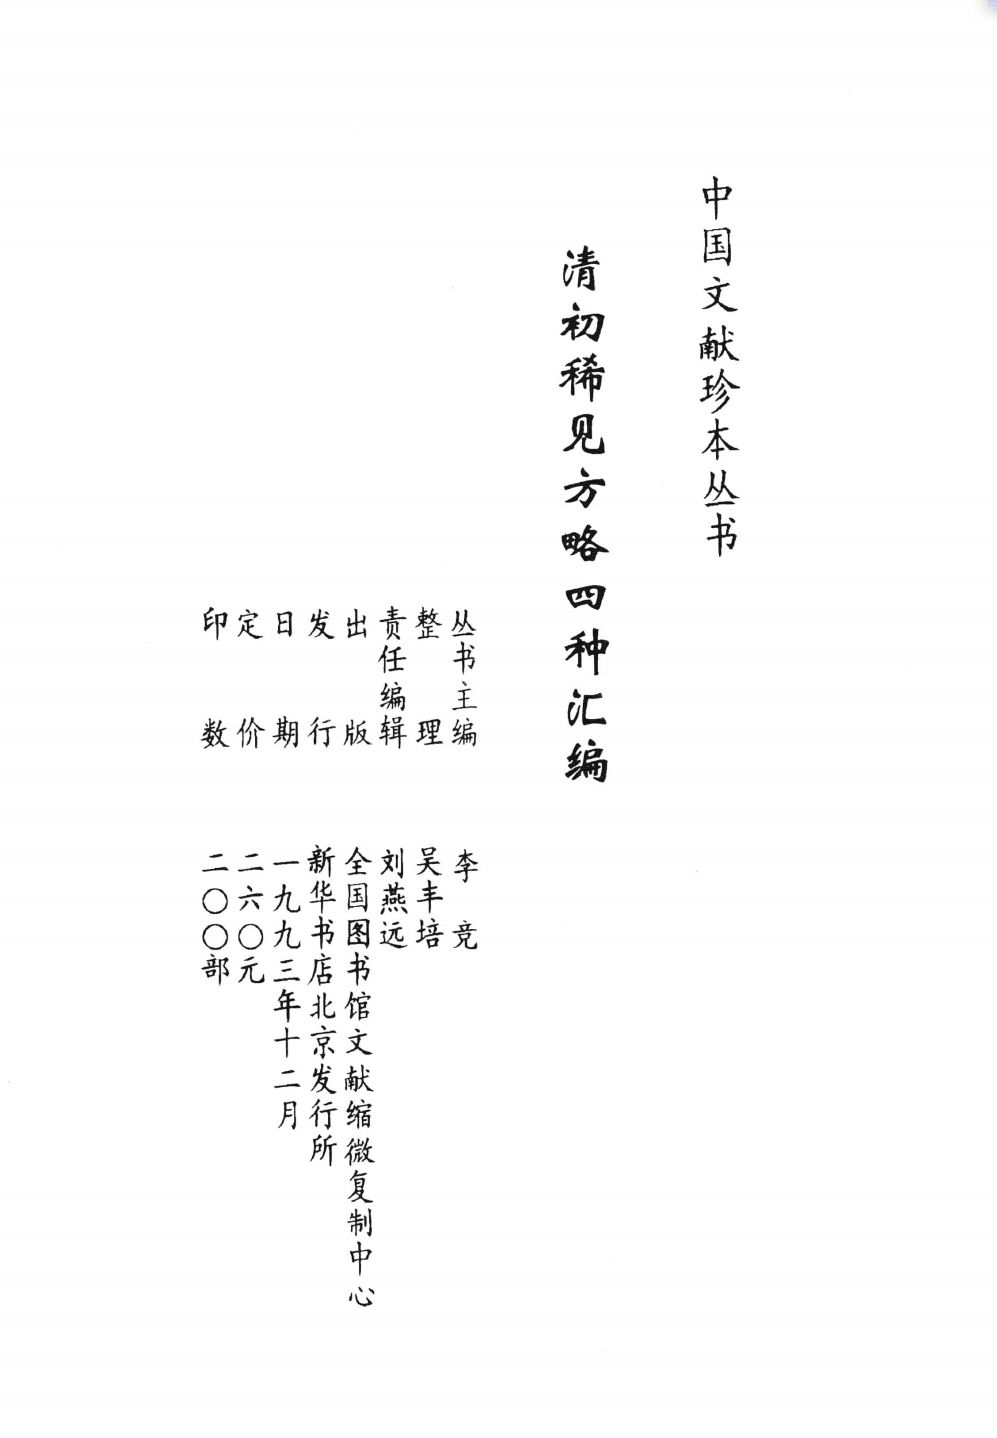 中国文献珍本丛书
清初稀见方略四种汇编
丛书主编 李竞
整理 吴丰培
责任编辑 刘燕远
出版 全国图书馆文献缩微复制中心
发行 新华书店北京发行所
日期 一九九三年十二月
定价 二六〇元
印数 二〇〇部